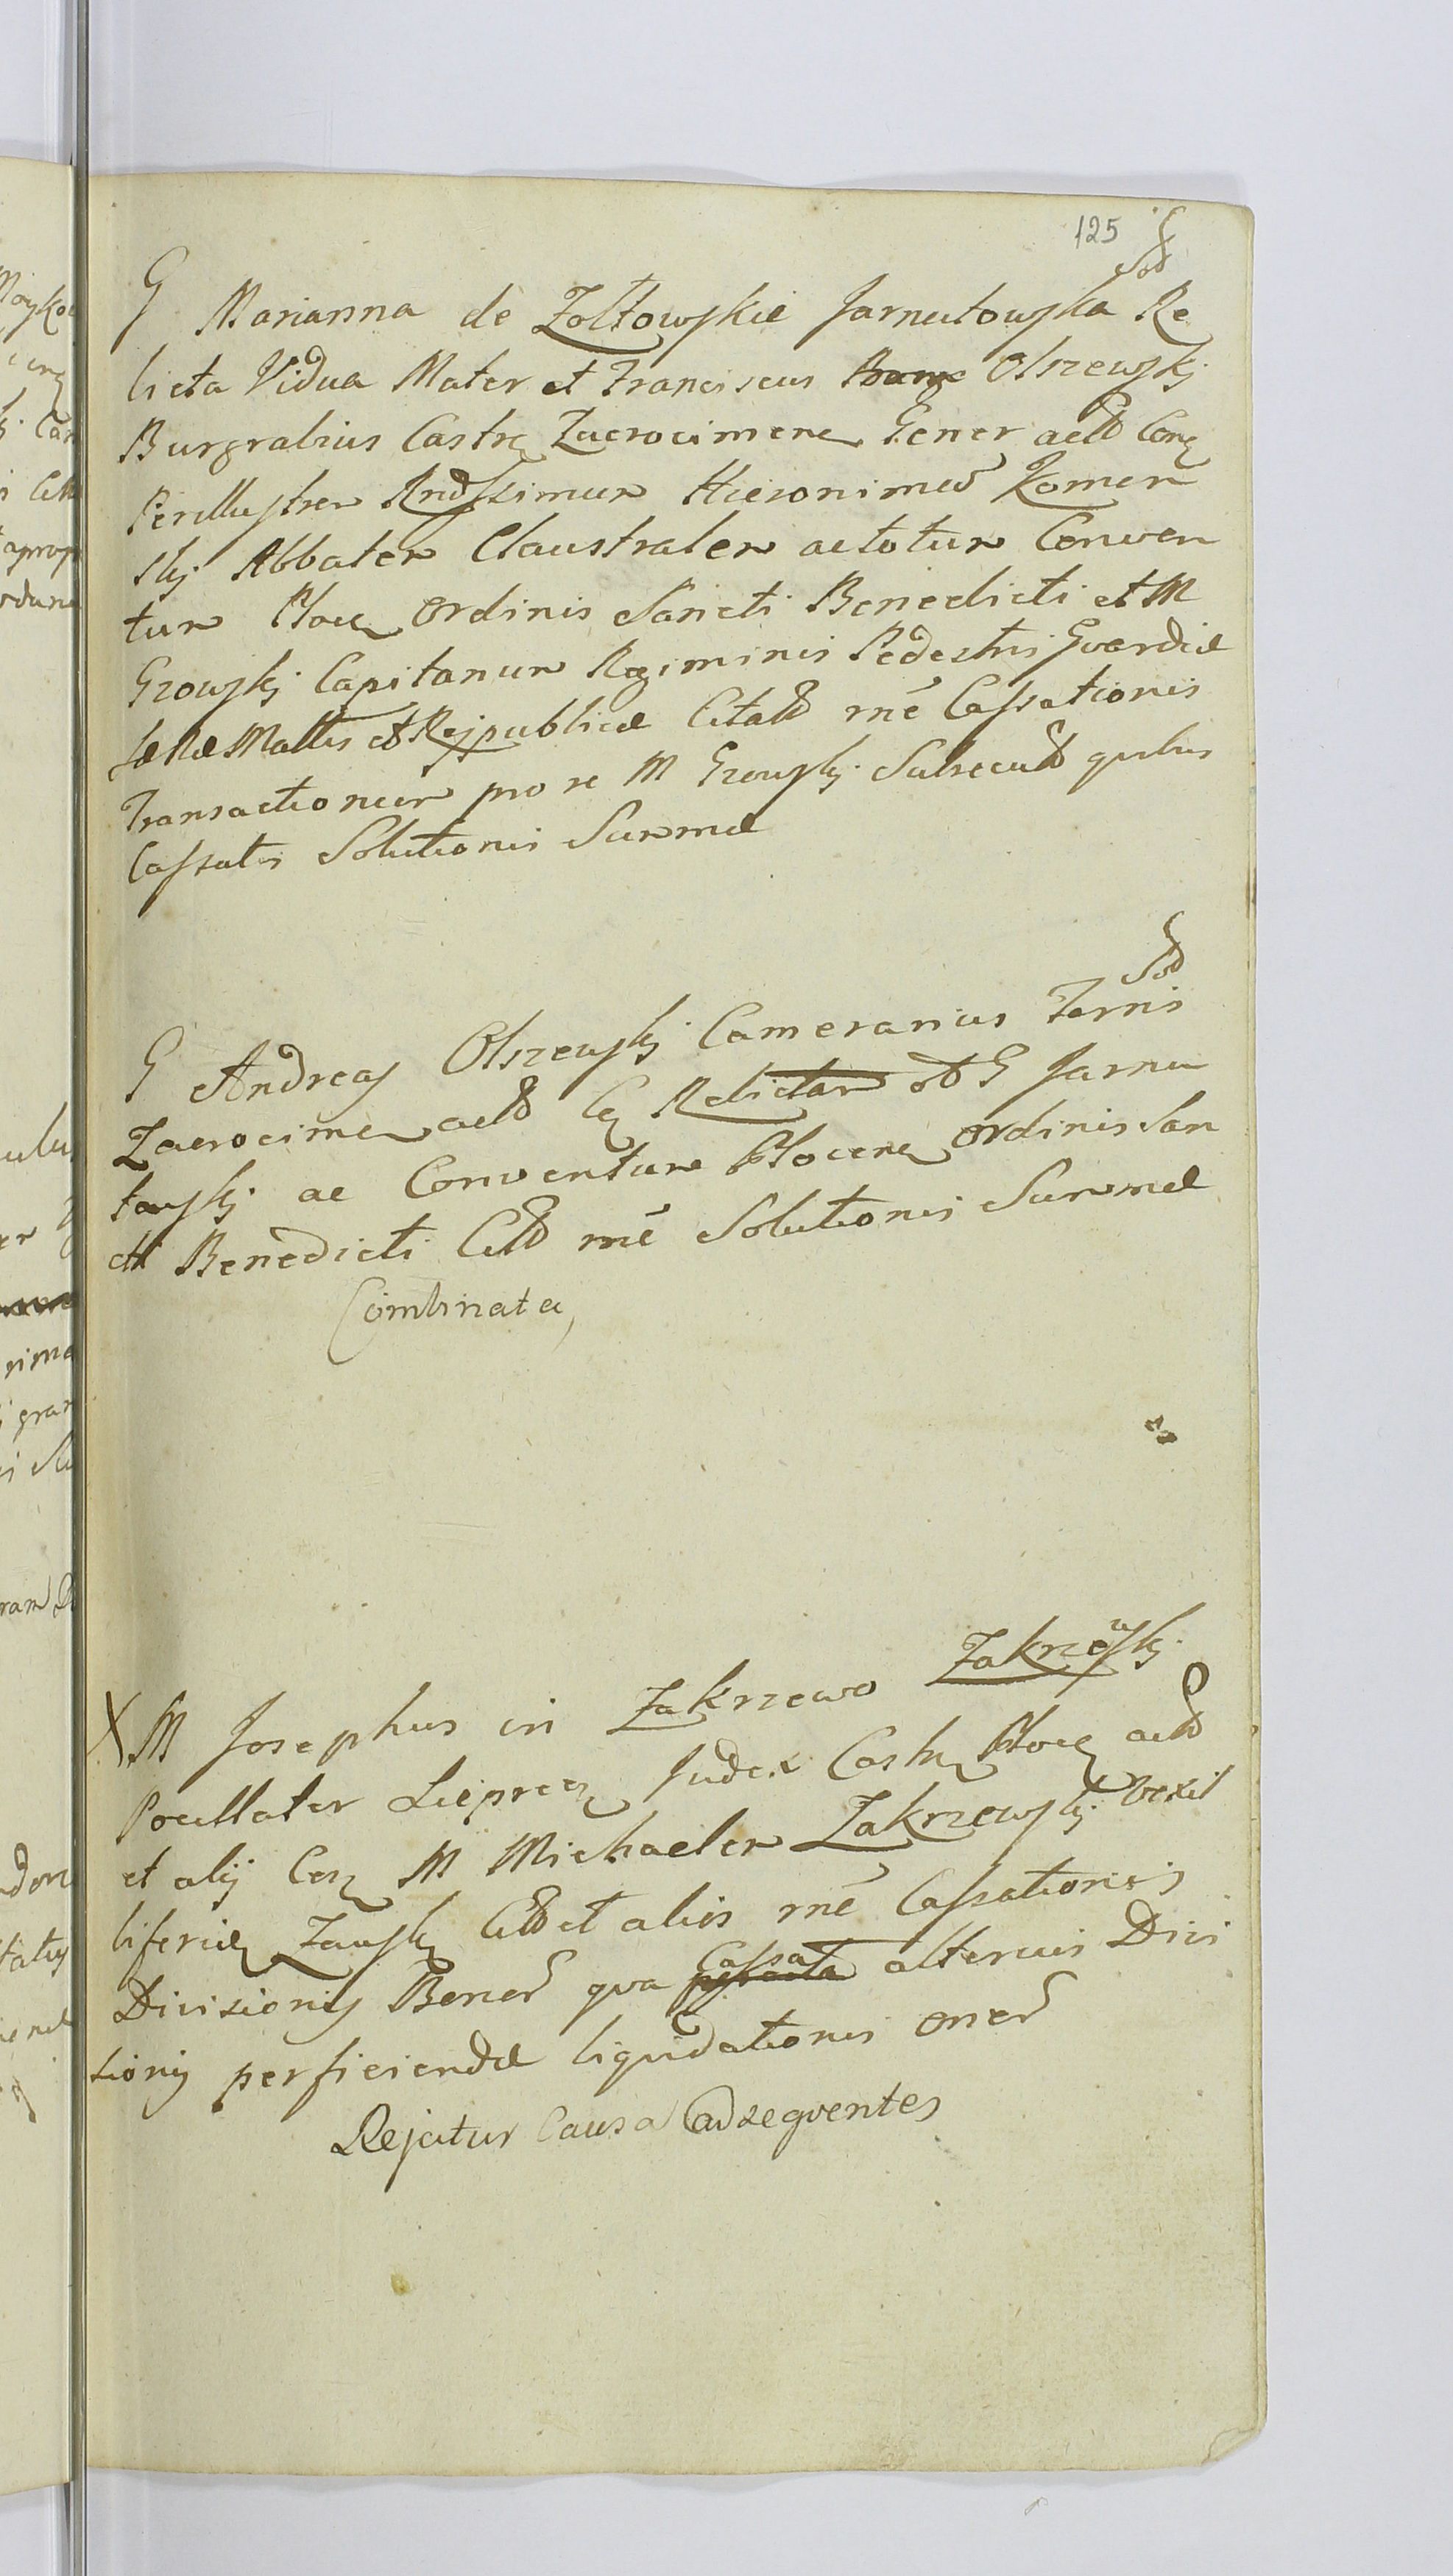 125
Sod
G Marianna de Zołtowskie Jarnutowska Re
licta Vidua Mater et Franciscus Olszewskj
Burgrabius Castr Zacrocimene Gener actt Con
Perillustren Rndssimum Hieronimu Komorn
skj Abbatem Claustralem actotum Conven
tum Ploc ordinis Sancti Benedicti et M
Gzowskj Capitanum Regiminis Pedestris Gvardiæ
Mattis et Rejpublicæ Citatt rñe Cassationis
Transactionum pro se M Gzowskj Subsecutt quibus
Cassatis Solutionis Summæ
Sod
G Andreas Olszewskj Cameranius Terris
Zacrocimen actt C Relictam et G Jarnu
towskj ac Conventum Plocene ordinis San
cti Benedicti Citt rñe Solutionis Summæ
Combinata
X M Josephus in Zakrzewo Zakrzewskj
Pocillator Liepren Judex Castr Ploc actt
et alij Con M Michaelem Zakrzewskj vexil
liferid Zawsk Citt et aliis rñe Cassationis
Divisionis Bonor qua Cassa alterius Divi
sionis perficiendæ liquidationis oner
Rejcitur Causa ad seqventes